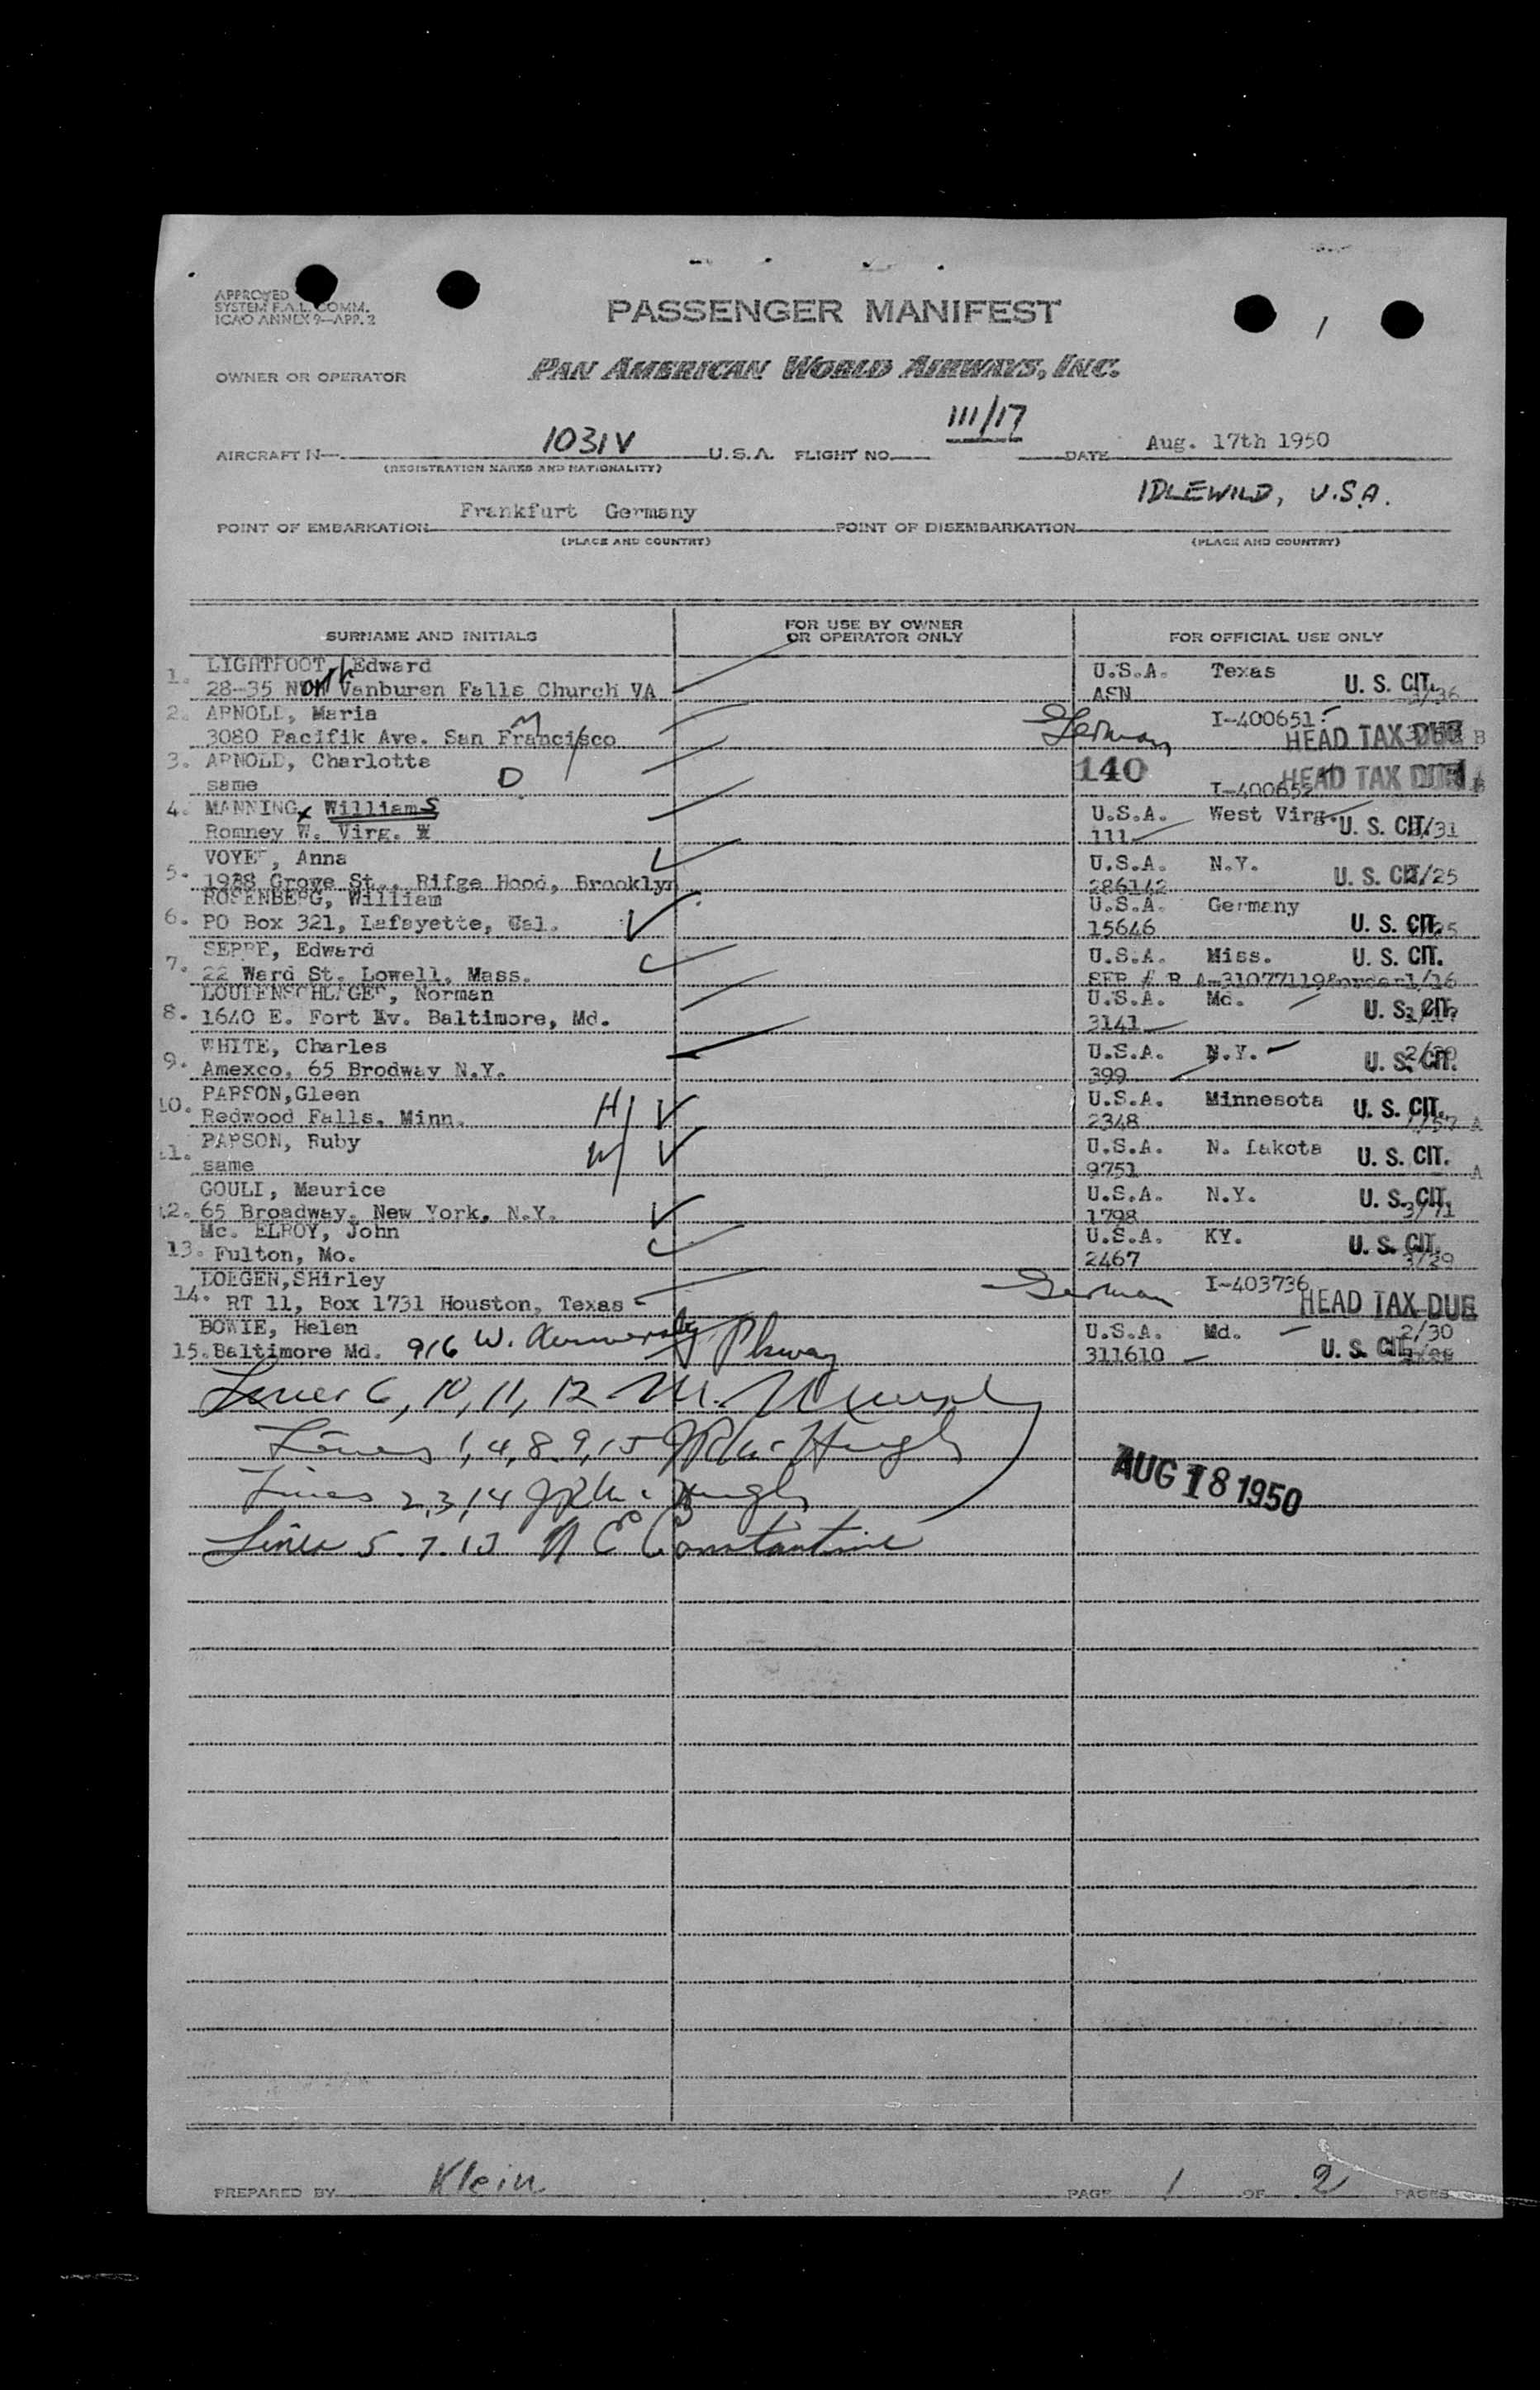 APPROVED
SYSTEM F.A.L. COMM.
ICAO ANNEX 9—APP. 2
PASSENGER MANIFEST
1
OWNER OR OPERATOR
PAN AMERICAN WORLD AIRWAYS, INC.
AIRCRAFT N— 1031V U.S.A. FLIGHT NO. 111/17 DATE Aug. 17th 1950
(REGISTRATION MARKS AND NATIONALITY)
POINT OF EMBARKATION Frankfurt Germany POINT OF DISEMBARKATION IDLEWILD, U.S.A.
(PLACE AND COUNTRY) (PLACE AND COUNTRY)
SURNAME AND INITIALS FOR USE BY OWNER OR OPERATOR ONLY FOR OFFICIAL USE ONLY
1. LIGHTFOOT, Edward U.S.A. Texas
28-35 North Vanburen Falls Church VA ASN U. S. CIT.
2. ARNOLD, Maria I-400651
3080 Pacifik Ave. San Francisco M German HEAD TAX DUE B
3. ARNOLD, Charlotte 140
same D I-400652 HEAD TAX DUE B
4. MANNING, Williams U.S.A. West Virg.
Romney W. Virg. 111 U. S. CIT.
5. VOYET, Anna U.S.A. N.Y.
1988 Grove St., Rifge Hood, Brooklyn 286142 U. S. CIT.
ROSENBERG, William U.S.A. Germany
6. PO Box 321, Lafayette, Cal. 15646 U. S. CIT.
SEPPE, Edward U.S.A. Miss. U. S. CIT.
7. 22 Ward St. Lowell, Mass. SER # R A-31077119&order 1/16
LOUDENSCHLAGER, Norman U.S.A. Md.
8. 1640 E. Fort Av. Baltimore, Md. 3141 U. S. CIT.
WHITE, Charles U.S.A. N.Y.
9. Amexco, 65 Brodway N.Y. 399 U. S. CIT.
PARSON,Gleen U.S.A. Minnesota
10. Redwood Falls, Minn. H 2348 U. S. CIT. A
11. PARSON, Ruby U.S.A. N. Dakota
same W 9751 U. S. CIT. A
GOULD, Maurice U.S.A. N.Y.
12. 65 Broadway, New York, N.Y. 1798 U. S. CIT.
Mc. ELROY, John U.S.A. KY.
13. Fulton, Mo. 2467 U. S. CIT. 3/29
DOEGEN,SHirley I-403736
14. RT 11, Box 1731 Houston, Texas German HEAD TAX DUE
BOWIE, Helen U.S.A. Md. 2/30
15. Baltimore Md. 916 W. University Pkway 311610 U. S. CIT.
Lines 6, 10, 11, 12 M.
Lines 1, 4, 8, 9, 15 J R Mc Hugh
Lines 2, 3, 14 J R Mc Hugh
AUG 18 1950
Lines 5. 7. 13 N E Constantine
PREPARED BY Klein PAGE 1 OF 2 PAGES